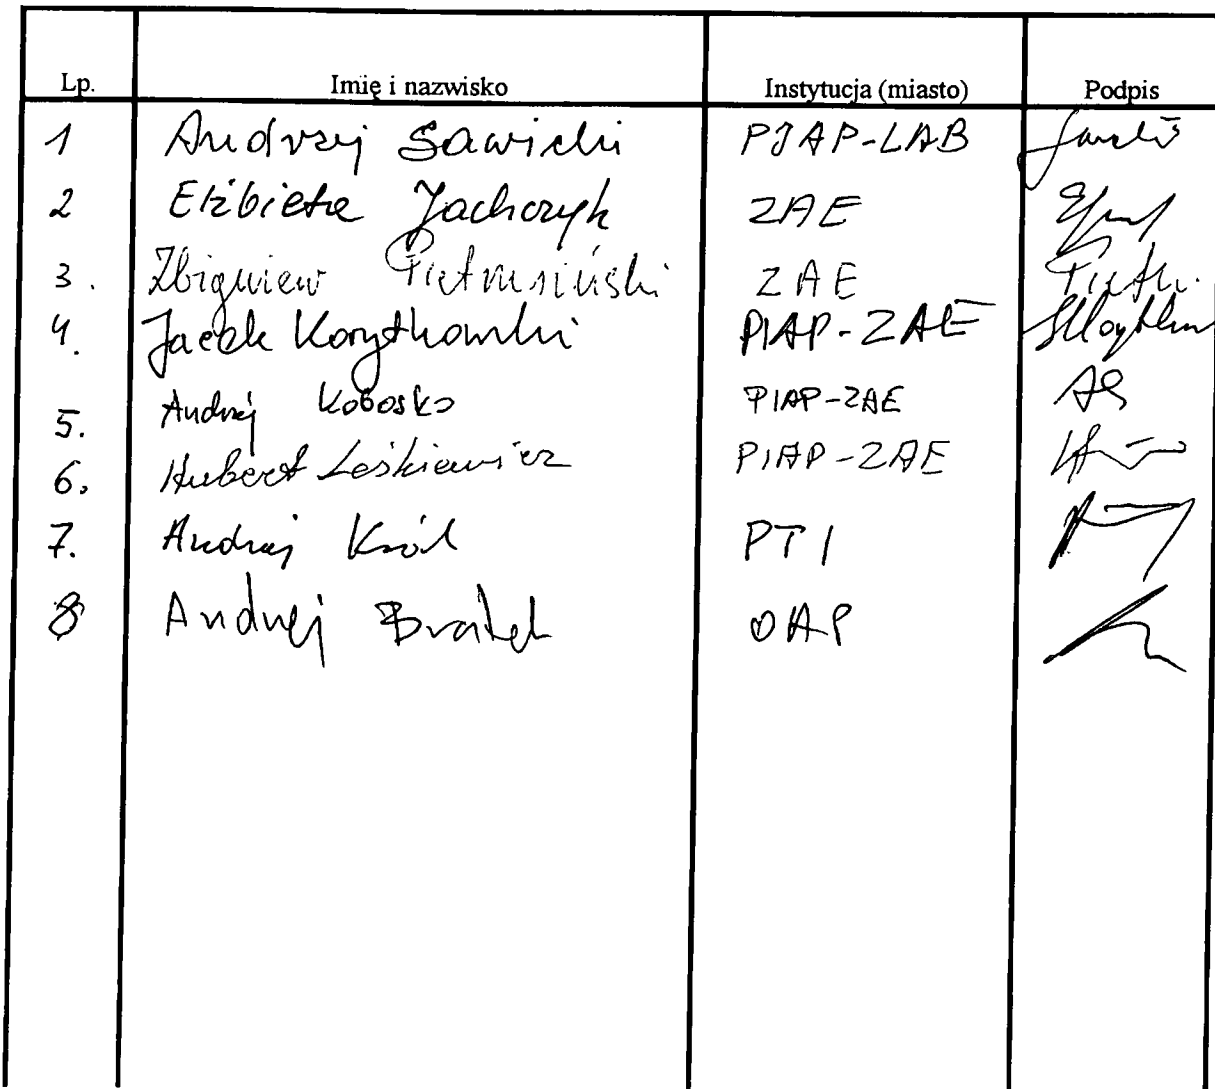 Lp. Imię i nazwisko Instytucja (miasto) Podpis
1 Andrzej Sawicki PIAP-LAB
2 Elżbieta Jachczyk ZAE
3. Zbigniew Pietrusiński ZAE
4. Jacek Korytkowski PIAP-ZAE
5. Andrzej Kobosko PIAP-ZAE
6. Hubert Leśkiewicz PIAP-ZAE
7. Andrzej Król PTI
8 Andrzej Bratek OAP